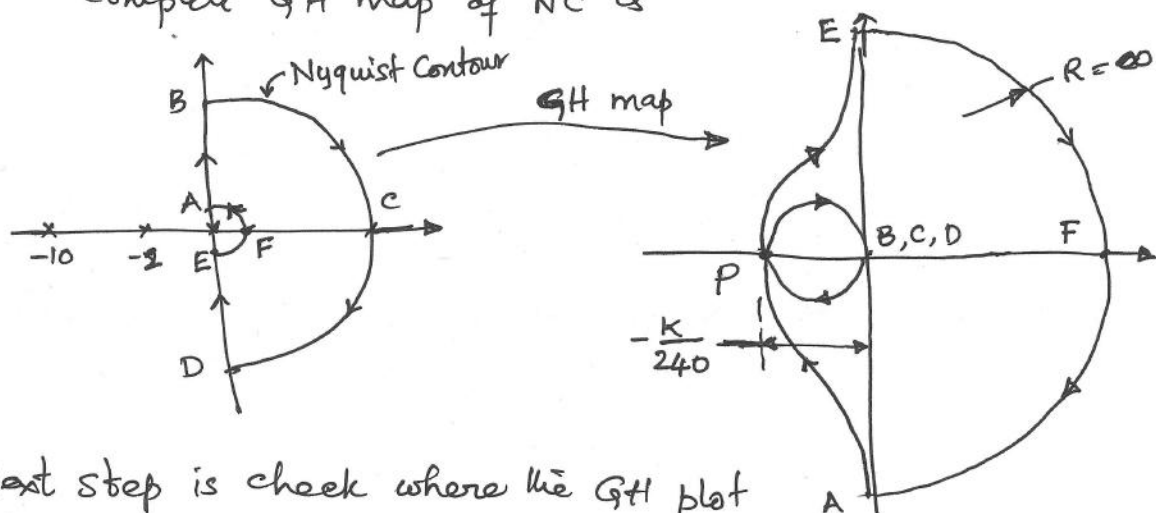 Complete GH map of NC is
Nyquist Contour
B
GH map
A
C
-10
-2
E
F
D
E
R = ∞
B, C, D
F
P
-K/240
A
ext step is check where the GH plot